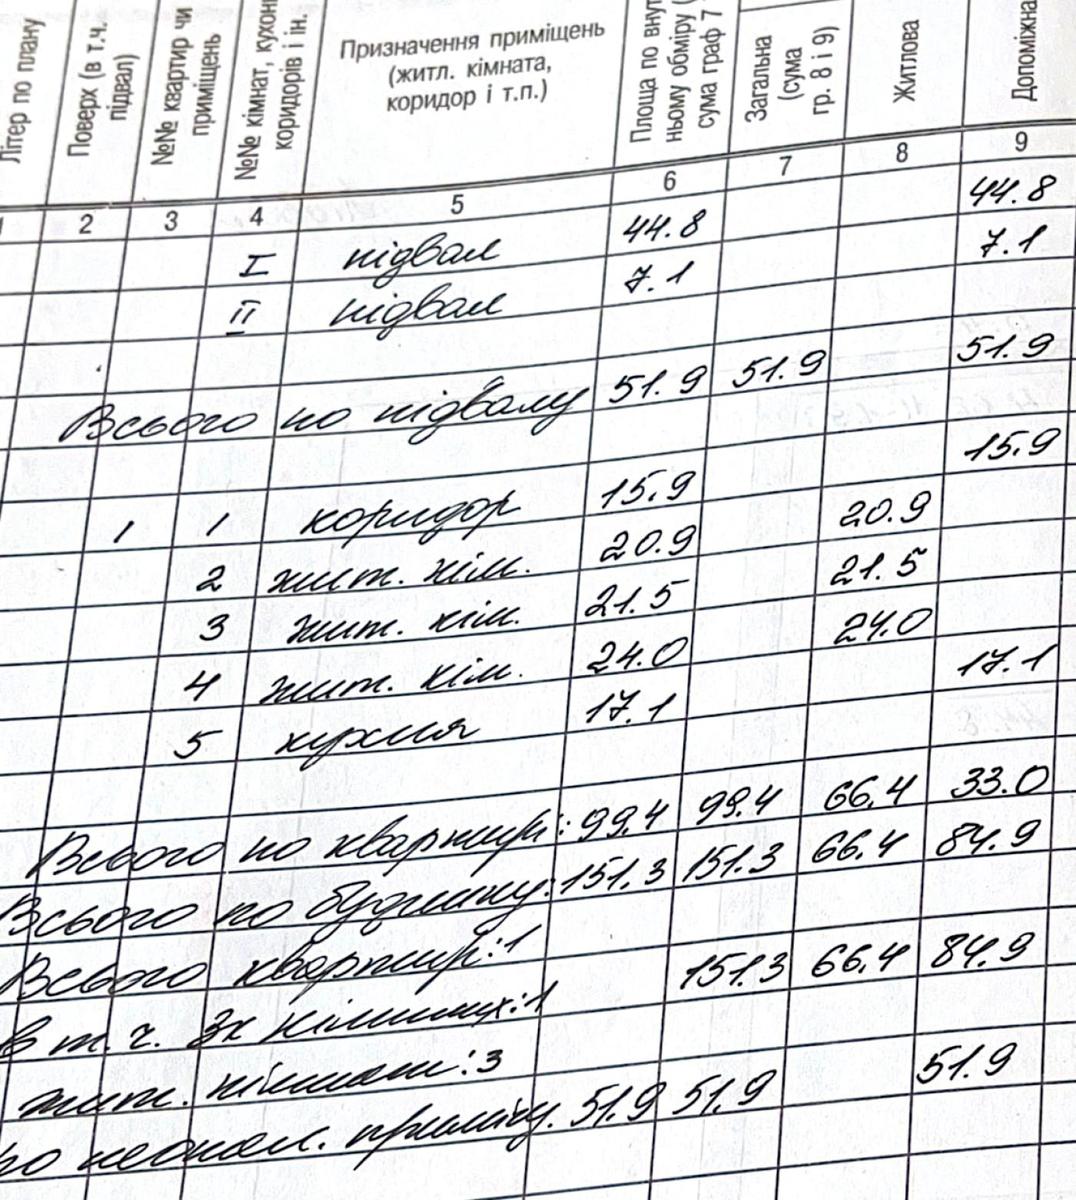 Літер по плану
Поверх (в т.ч. підвал)
№№ квартир чи приміщень
№№ кімнат, кухонь коридорів і ін.
Призначення приміщень (житл. кімната, коридор і т.п.)
Площа по внут ньому обміру ( сума граф 7
Загальна (сума гр. 8 і 9)
Житлова
Допоміжна
1 2 3 4 5 6 7 8 9
I підвал 44.8 44.8
II підвал 7.1 7.1
Всього по підвалу 51.9 51.9 51.9
1 1 коридор 15.9 15.9
2 жит. кім. 20.9 20.9
3 жит. кім. 21.5 21.5
4 жит. кім. 24.0 24.0
5 кухня 17.1 17.1
Всього по квартирі: 99.4 99.4 66.4 33.0
Всього по будинку: 151.3 151.3 66.4 84.9
Всього квартир: 1 151.3 66.4 84.9
в т.ч. 3х кімнатних: 1
жит. кімнат: 3
по неопал. приміщ. 51.9 51.9 51.9